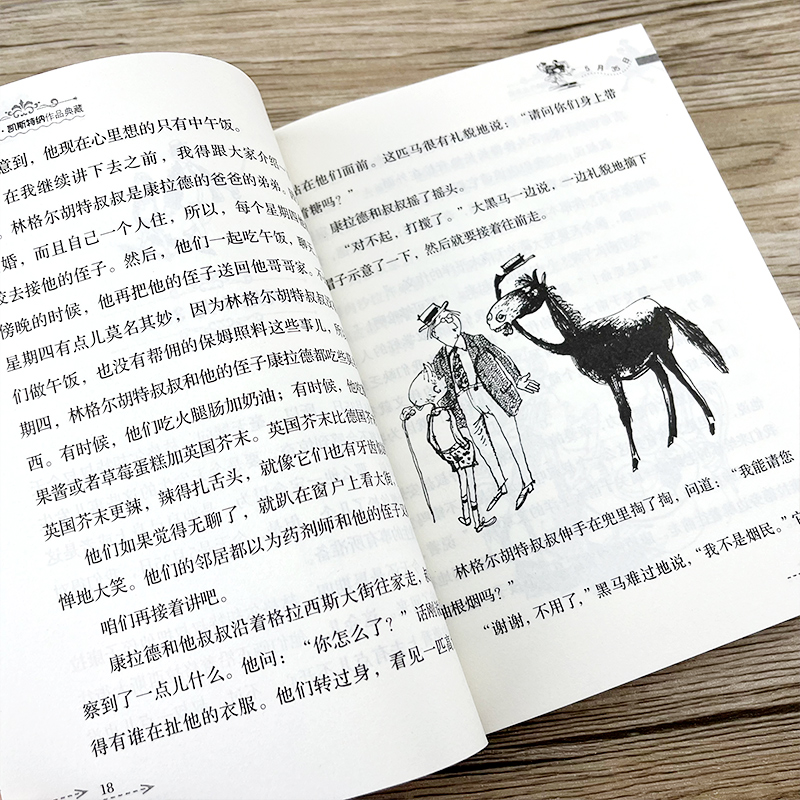 ·凯斯特纳作品典藏
意到，他现在心里想的只有中午饭。
在我继续讲下去之前，我得跟大家介绍
林格尔胡特叔叔是康拉德的爸爸的弟弟。
婚，而且自己一个人住，所以，每个星期四
校去接他的侄子。然后，他们一起吃午饭，聊
傍晚的时候，他再把他的侄子送回他哥哥家。不
星期四有点儿莫名其妙，因为林格尔胡特叔叔
们做午饭，也没有帮佣的保姆照料这些事儿，所
期四，林格尔胡特叔叔和他的侄子康拉德都吃些
西。有时候，他们吃火腿肠加奶油；有时候，他
果酱或者草莓蛋糕加英国芥末。英国芥末比德国
英国芥末更辣，辣得扎舌头，就像它们也有牙齿
他们如果觉得无聊了，就趴在窗户上看大街，
惮地大笑。他们的邻居都以为药剂师和他的侄子
咱们再接着讲吧。
康拉德和他叔叔沿着格拉西斯大街往家走，
察到了一点儿什么。他问：“你怎么了？”话刚
得有谁在扯他的衣服。他们转过身，看见一匹
18
5月35日
站在他们面前。这匹马很有礼貌地说：“请问你们身上带
着糖吗？”
康拉德和叔叔摇了摇头。
“对不起，打搅了。”大黑马一边说，一边礼貌地摘下
帽子示意了一下，然后就要接着往前走。
林格尔胡特叔叔伸手在兜里掏了掏，问道：“我能请您
抽根烟吗？”
“谢谢，不用了，”黑马难过地说，“我不是烟民。”它